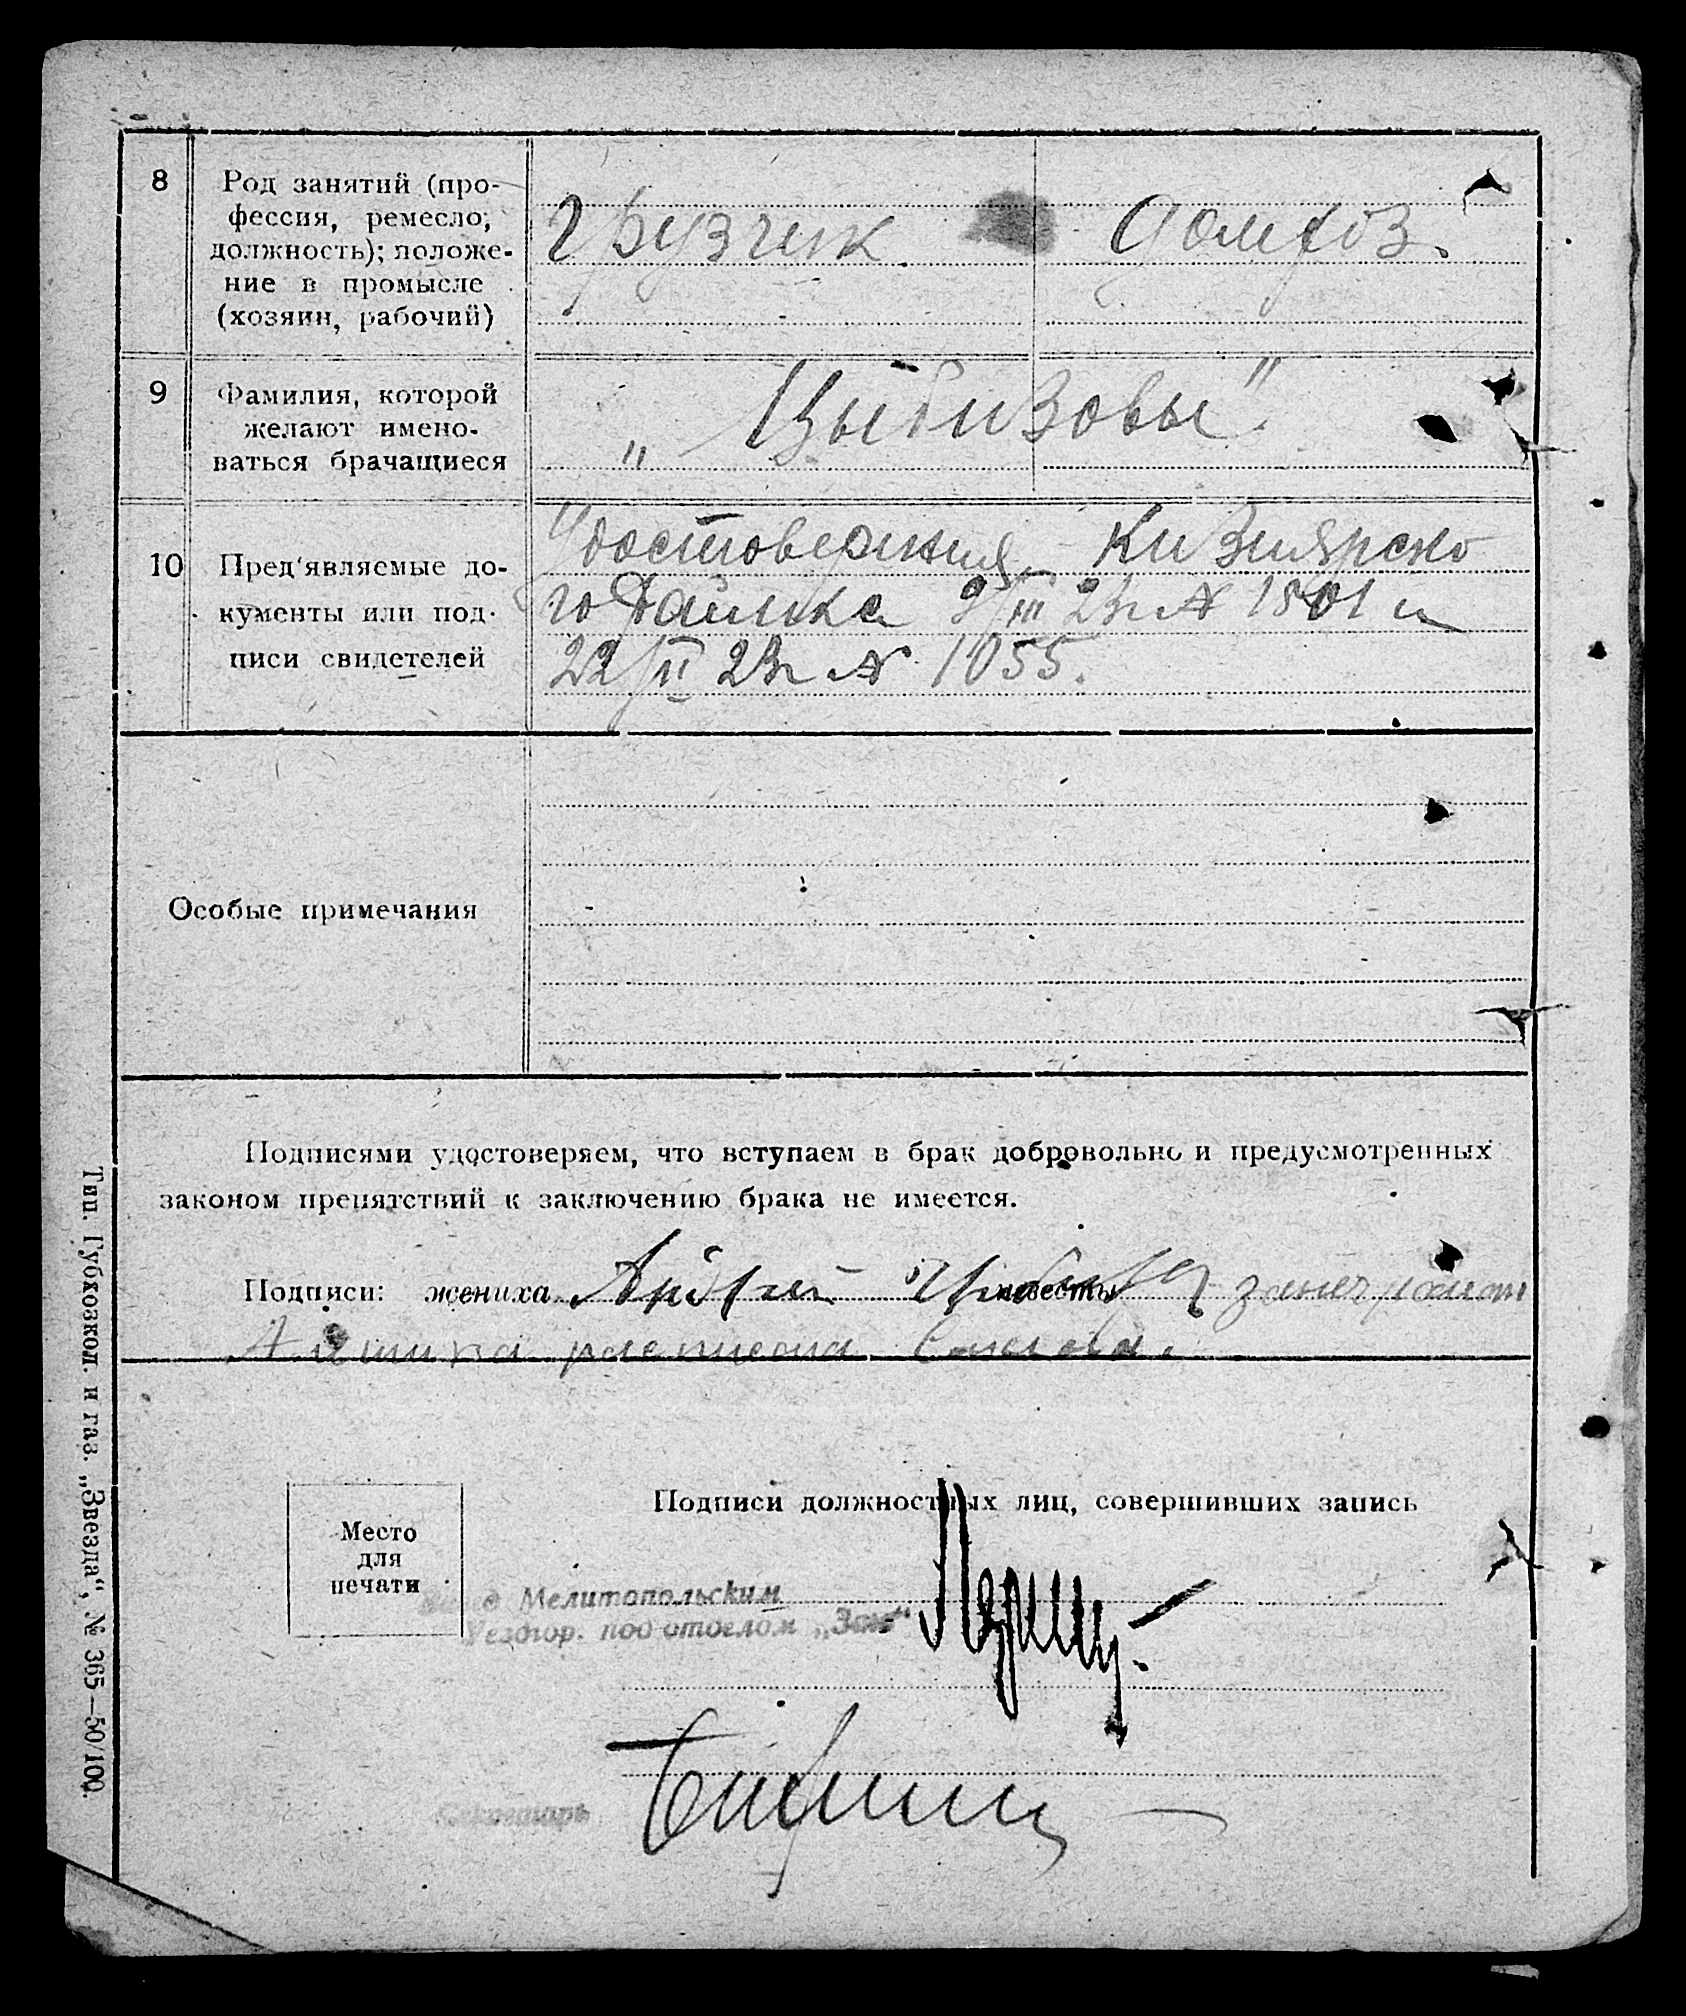 8
Род занятий (про-
фессия, ремесло,
должность); положе-
ние в промысле
(хозяин, рабочий)
грузчик
домхоз.
9
Фамилия, которой
желают имено-
ваться брачащиеся
„Цыбизовы"
10
Пред'являемые до-
кументы или под-
писи свидетелей
Удостоверения Кизиярско
го Раймка 9/III 23г № 1501 и
22/II 23г № 1055.
Особые примечания
Подписями удостоверяем, что вступаем в брак добровольно и предусмотренных
законом препятствий к заключению брака не имеется.
Подписи: жениха Андрей невесты за неграмот
Подписи должностных лиц, совершивших запись
Место
для
печати
Мелитопольским
Уездгор. подотделом „Загс"
Секретарь
Тип. Губкозкол. и газ. „Звезда", № 365—50/100.